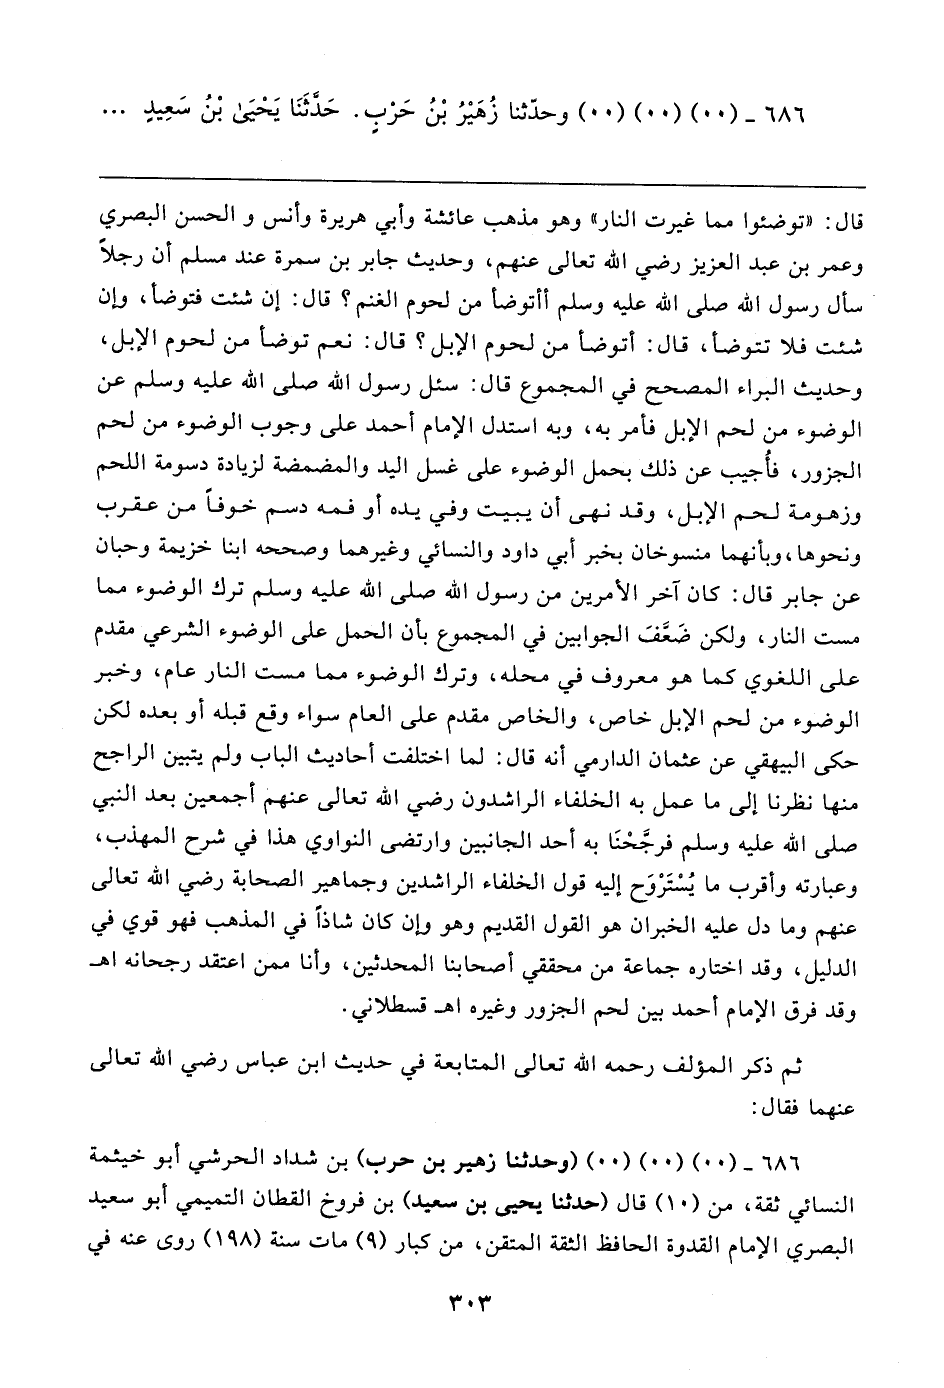 ٦٨٦ ـ (٠٠) (٠٠) (٠٠) وحدّثنا زُهَيْرُ بْنُ حَرْبٍ. حَدَّثَنَا يَحْيَىٰ بْنُ سَعِيدٍ ...
قال: «توضئوا مما غيرت النار» وهو مذهب عائشة وأبي هريرة وأنس و الحسن البصري
وعمر بن عبد العزيز رضي الله تعالى عنهم، وحديث جابر بن سمرة عند مسلم أن رجلاً
سأل رسول الله صلى الله عليه وسلم أأتوضأ من لحوم الغنم؟ قال: إن شئت فتوضأ، وإن
شئت فلا تتوضأ، قال: أتوضأ من لحوم الإبل؟ قال: نعم توضأ من لحوم الإبل،
وحديث البراء المصحح في المجموع قال: سئل رسول الله صلى الله عليه وسلم عن
الوضوء من لحم الإبل فأمر به، وبه استدل الإمام أحمد على وجوب الوضوء من لحم
الجزور، فأُجيب عن ذلك بحمل الوضوء على غسل اليد والمضمضة لزيادة دسومة اللحم
وزهومة لحم الإبل، وقد نهى أن يبيت وفي يده أو فمه دسم خوفاً من عقرب
ونحوها، وبأنهما منسوخان بخبر أبي داود والنسائي وغيرهما وصححه ابنا خزيمة وحبان
عن جابر قال: كان آخر الأمرين من رسول الله صلى الله عليه وسلم ترك الوضوء مما
مست النار، ولكن ضَعَّفَ الجوابين في المجموع بأن الحمل على الوضوء الشرعي مقدم
على اللغوي كما هو معروف في محله، وترك الوضوء مما مست النار عام، وخبر
الوضوء من لحم الإبل خاص، والخاص مقدم على العام سواء وقع قبله أو بعده لكن
حكى البيهقي عن عثمان الدارمي أنه قال: لما اختلفت أحاديث الباب ولم يتبين الراجح
منها نظرنا إلى ما عمل به الخلفاء الراشدون رضي الله تعالى عنهم أجمعين بعد النبي
صلى الله عليه وسلم فرجَّحْنَا به أحد الجانبين وارتضى النواوي هذا في شرح المهذب،
وعبارته وأقرب ما يُسْتَرْوَح إليه قول الخلفاء الراشدين وجماهير الصحابة رضي الله تعالى
عنهم وما دل عليه الخبران هو القول القديم وهو وإن كان شاذاً في المذهب فهو قوي في
الدليل، وقد اختاره جماعة من محققي أصحابنا المحدثين، وأنا ممن اعتقد رجحانه اهـ
وقد فرق الإمام أحمد بين لحم الجزور وغيره اهـ قسطلاني.
ثم ذكر المؤلف رحمه الله تعالى المتابعة في حديث ابن عباس رضي الله تعالى
عنهما فقال:
٦٨٦ ـ (٠٠) (٠٠) (٠٠) (وحدثنا زهير بن حرب) بن شداد الحرشي أبو خيثمة
النسائي ثقة، من (١٠) قال (حدثنا يحيى بن سعيد) بن فروخ القطان التميمي أبو سعيد
البصري الإمام القدوة الحافظ الثقة المتقن، من كبار (٩) مات سنة (١٩٨) روى عنه في
٣٠٣